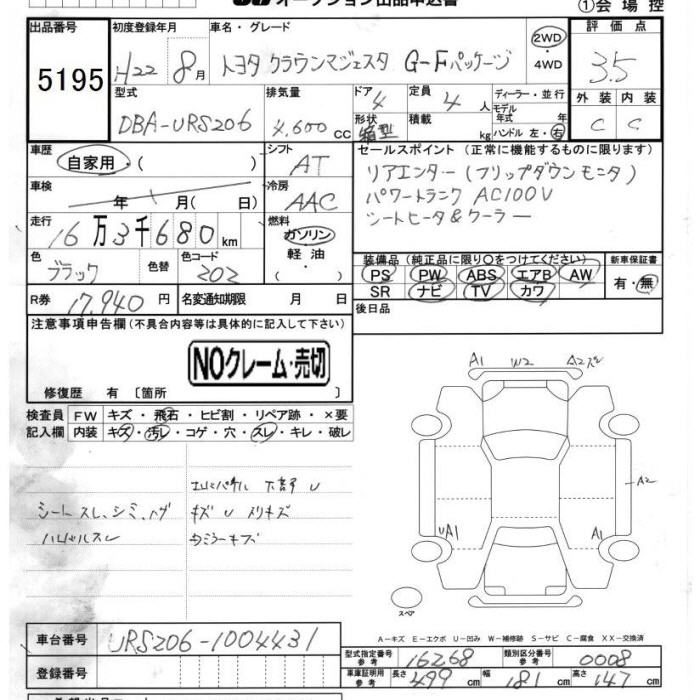 オークション出品申込書
①会場控
出品番号 初度登録年月 車名・グレード 評価点
5195 H22 8月 トヨタ クラウンマジェスタ G-Fパッケージ 2WD 4WD 3.5
型式 排気量 ドア 4 定員 4人 ディーラー・並行
モデル年式 年
外装 内装
DBA-URS206 4,600cc 形状 箱型 積載 kg ハンドル 左・右 C C
車歴 自家用・( ) シフト AT
セールスポイント (正常に機能するものに限ります)
リアエンター(フリップダウンモニタ)
パワートランク AC100V
シートヒータ&クーラー
車検 年 月( 日) 冷房 AAC
走行 16万3千680km 燃料 ガソリン
軽油・
( )
色 ブラック 色替 色コード 202
装備品 (純正品に限り○をつけてください) 新車保証書
PS PW ABS エアB AW 有・無
SR ナビ TV カワ
R券 17,940円 名変通知期限 月 日 後日品
注意事項申告欄(不具合内容等は具体的に記入して下さい)
NOクレーム・売切
修復歴 有 〔箇所 〕
検査員 FW キズ・飛石・ヒビ割・リペア跡・×要
記入欄 内装 キズ・汚レ・コゲ・穴・スレ・キレ・破レ
A1 W2 A2ズレ
A2
UA1 A1
シートスレ、シミ、ハゲ
ハンドルスレ
下部 U
キズ U スリキズ
ウミラーキズ
スペア
A-キズ E-エクボ U-凹み W-補修跡 S-サビ C-腐食 XX-交換済
車台番号 URS206-1004431
登録番号
型式指定番号 参考 16268 類別区分番号 参考 0008
車庫証明用 参考 長さ 499cm 幅 181cm 高さ 147cm